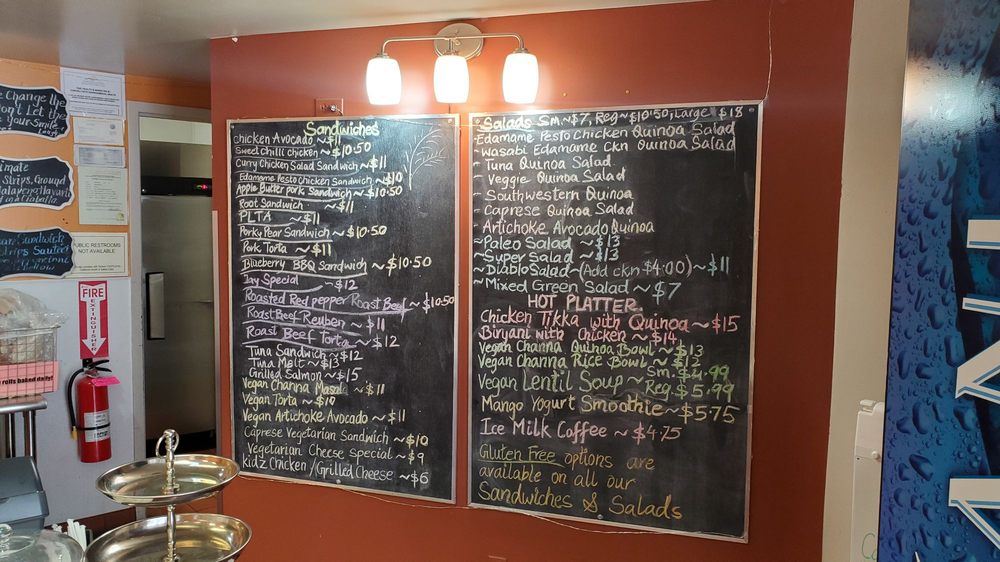 e Change the
Don't Let the
e Your Smile
Strips, Ground
PUBLIC RESTROOMS
NOT AVAILABLE
FIRE
EXTINGUISHER
rolls baked daily!
Sandwiches
Chicken Avocado ~ $11
Sweet Chilli chicken ~ $10.50
Curry Chicken Salad Sandwich ~ $11
Edamame Pesto Chicken Sandwich ~ $10
Apple Butter pork Sandwich ~ $10.50
Root Sandwich ~ $11
PLTA ~ $11
Porky Pear Sandwich ~ $10.50
Pork Torta ~ $11
Blueberry BBQ Sandwich ~ $10.50
Jay Special ~ $12
Roasted Red pepper Roast Beef ~ $10.50
Roast Beef Reuben ~ $11
Roast Beef Torta ~ $12
Tuna Sandwich ~ $12
Tuna Melt ~ $13
Grilled Salmon ~ $15
Vegan Channa Masala ~ $11
Vegan Torta ~ $10
Vegan Artichoke Avocado ~ $11
Caprese Vegetarian Sandwich ~ $10
Vegetarian Cheese Special ~ $9
Kidz Chicken / Grilled Cheese ~ $6
- Salads Sm.~$7, Reg~$10.50, Large $18
- Edamame Pesto Chicken Quinoa Salad
- Wasabi Edamame Ckn Quinoa Salad
- Tuna Quinoa Salad
- Veggie Quinoa Salad
- Southwestern Quinoa
- Caprese Quinoa Salad
- Artichoke Avocado Quinoa
~ Paleo Salad ~ $13
~ Super Salad ~ $13
~ Diablo Salad ~ (Add ckn $4.00) ~ $11
~ Mixed Green Salad ~ $7
HOT PLATTER
Chicken Tikka with Quinoa ~ $15
Biryani with Chicken ~ $14
Vegan Channa Quinoa Bowl ~ $13
Vegan Channa Rice Bowl ~ $12
Vegan Lentil Soup ~ Sm. $4.99
Reg. $5.99
Mango Yogurt Smoothie ~ $5.75
Ice Milk Coffee ~ $4.75
Gluten Free options are
available on all our
Sandwiches & Salads